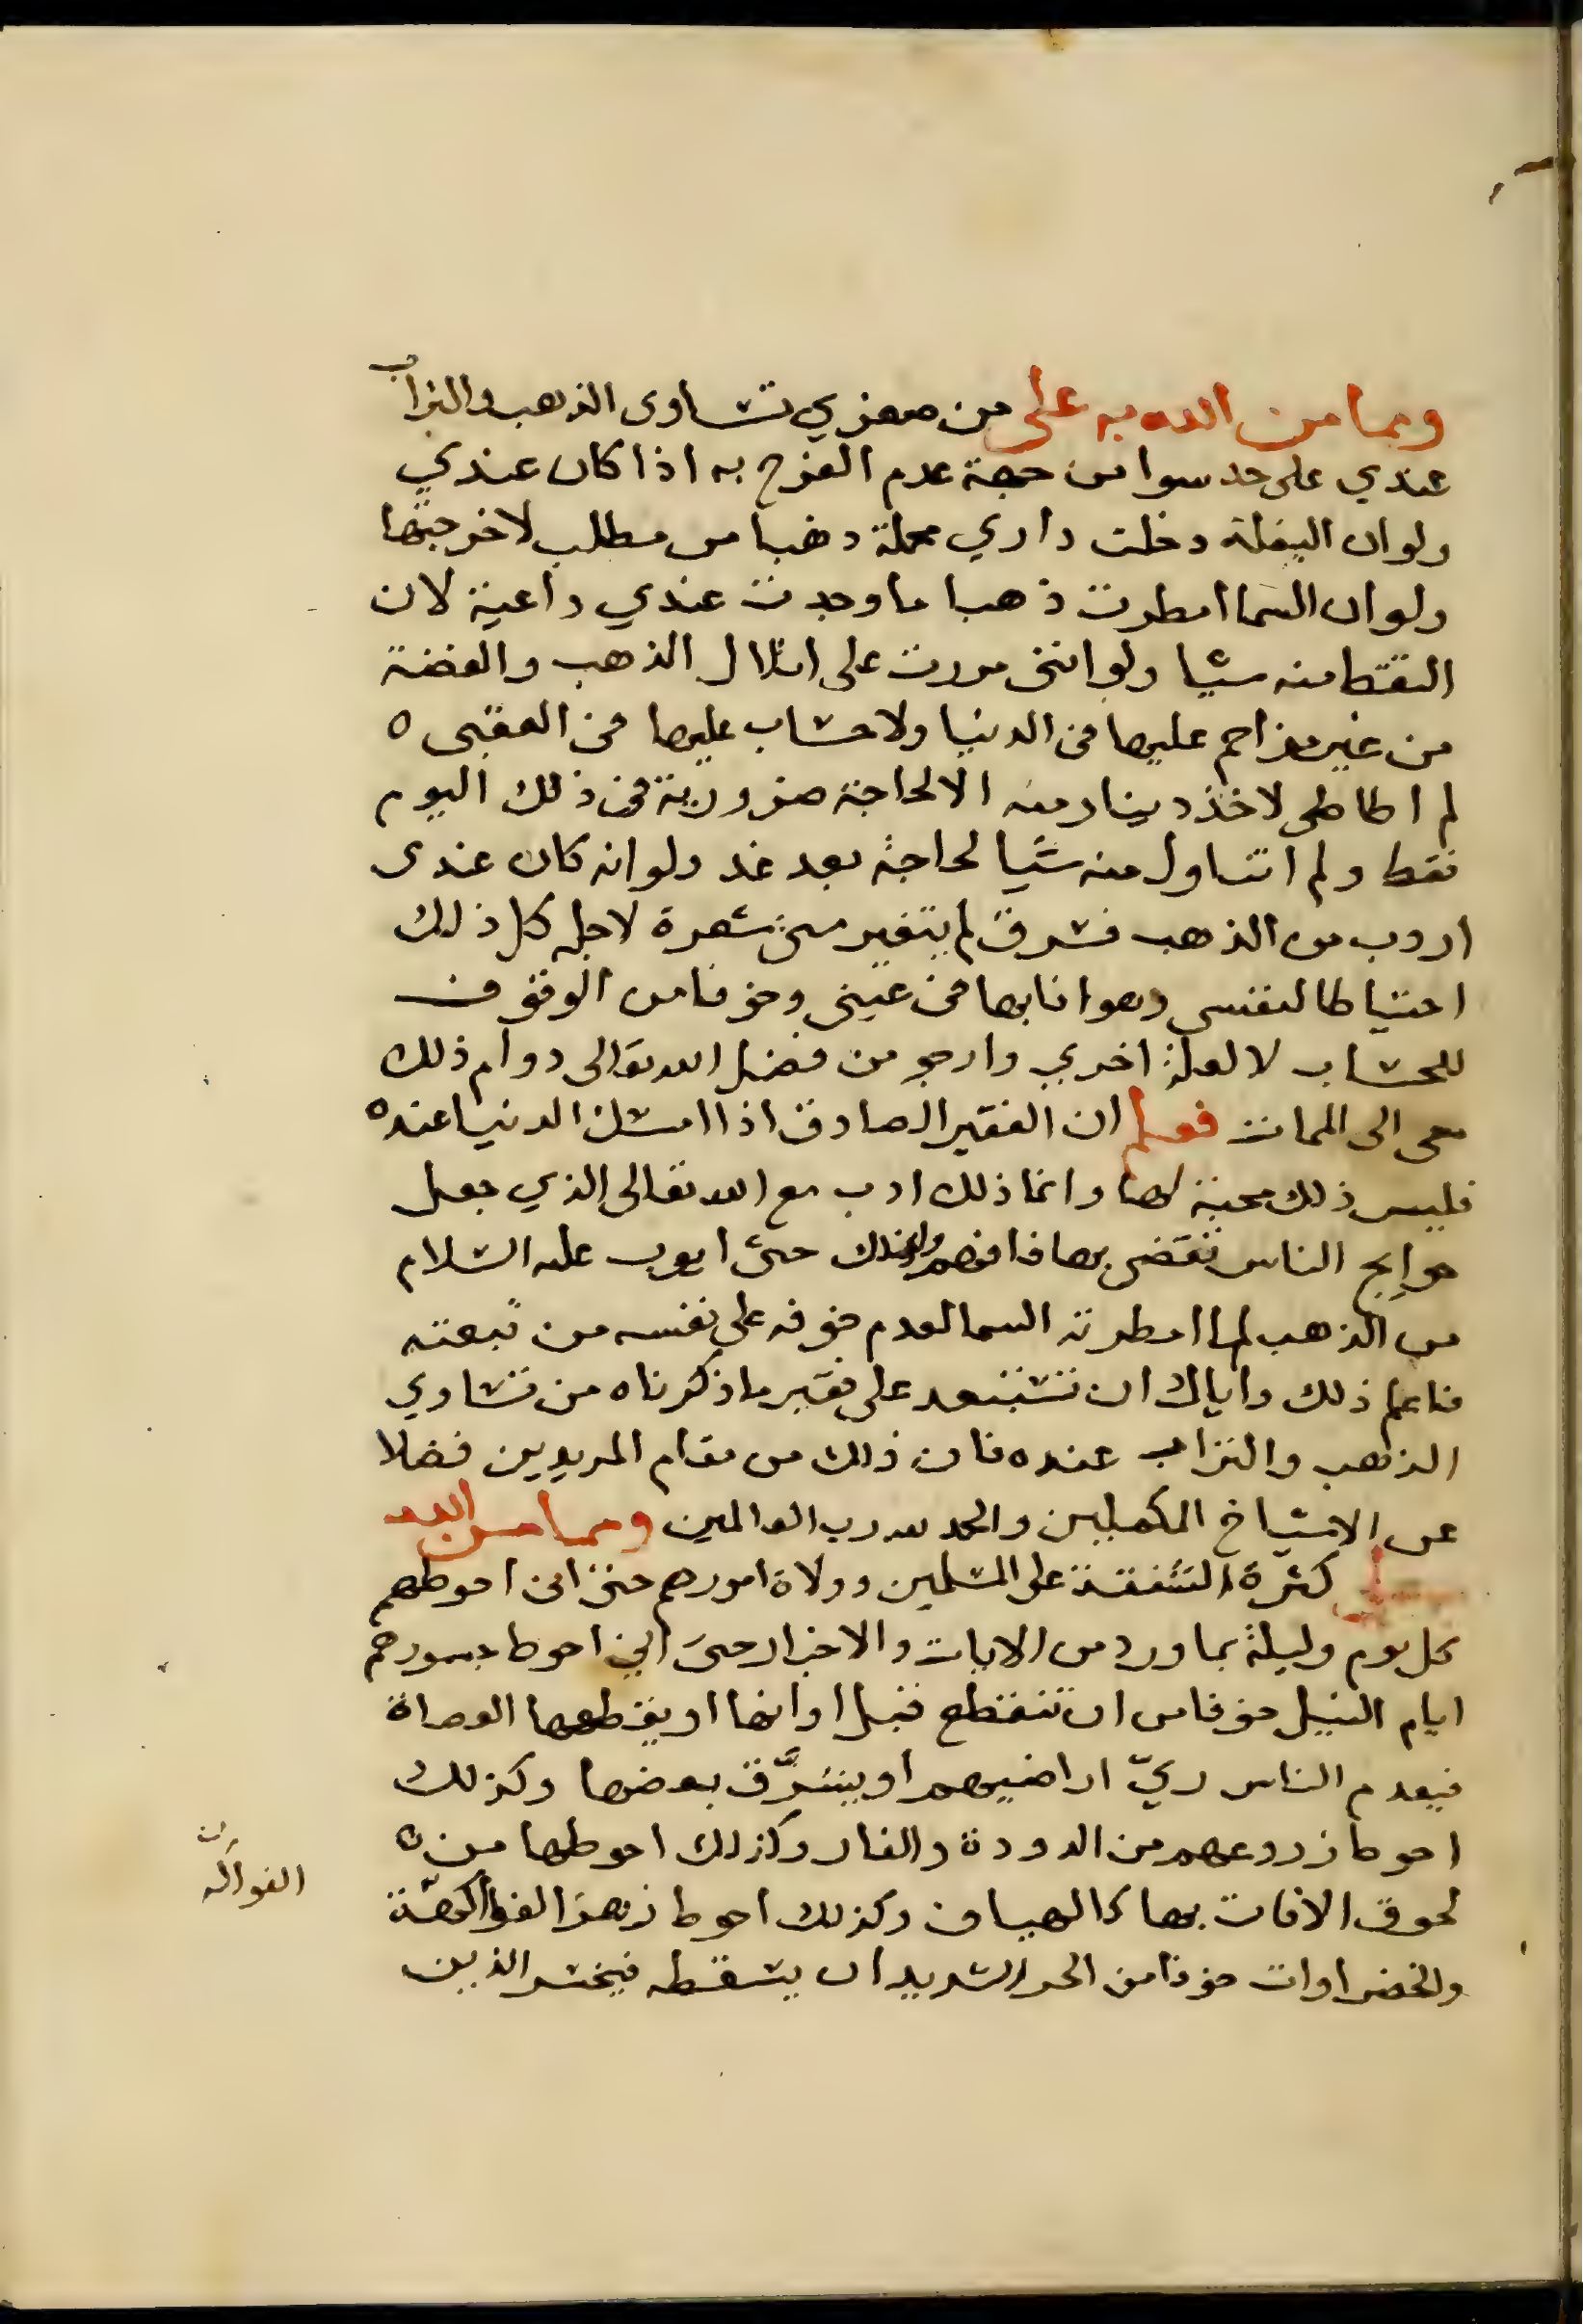 ومما من الله به على من صغري تساوى الذهب والتراب
عندي على حد سوا من جهة عدم الفرح به اذا كان عندي
ولو ان البغلة دخلت داري محملة دهبا من مطلب لاخرجتها
ولو ان السما امطرت ذهبا ما وجدت عندي داعية لان
التقط منه شيا ولو اننى مررت على اتلال الذهب والفضة
من غير مزاحم عليها فى الدنيا ولا حساب عليها فى العقبى ه
لم اطاطى لاخذ دينار منه الا لحاجة ضرورية فى ذلك اليوم
فقط ولم اتناول منه شيا لحاجة بعد غد ولو انه كان عندى
اردب من الذهب فسرق لم يتغير منى شعرة لاجله كل ذلك
احتياطا لنفسى وهوانا بها فى عينى وخوفا من الوقوف
للحساب لا لعلة اخري وارجو من فضل الله تعالى دوام ذلك
معى الى الممات فعلم ان الفقير الصادق اذا امسك الدنيا عنده
فليس ذلك محبة لها وانما ذلك ادب مع الله تعالى الذي جعل
حوايج الناس تقضى بها فافهم ولذلك حثى ايوب عليه السلام
من الذهب لما امطرته السما لعدم خوفه على نفسه من تبعته
فاعلم ذلك واياك ان تستبعد على فقير ما ذكرناه من تساوي
الذهب والتراب عنده فان ذلك من مقام المريدين فضلا
عن الاشياخ المكملين والحمد لله رب العالمين ومما من الله
كثرة الشفقة على المسلمين وولاة امورهم حتى انى احوطهم
كل يوم وليلة بما ورد من الايات والاخبار حتى انى احوط جسورهم
ايام النيل خوفا من ان تنقطع قبل اوانها او يقطعها العصاة
فيعدم الناس ريّ اراضيهم او يتشرَّق بعضها وكذلك
احوط زروعهم من الدودة والفار وكذلك احوطها من ه
لحوق الافات بها كالهياف وكذلك احوط زهر الفواكهة
والخضراوات خوفا من الحر الشديد ان يسقطه فيخسر الذين
الفواكه